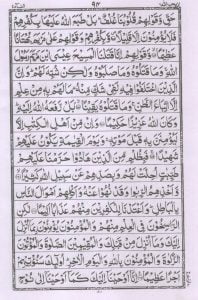 لايحب الله ٩٤ النسآء
حَقٍّ وَّقَوْلِهِمْ قُلُوْبُنَا غُلْفٌ ؕ بَلْ طَبَعَ اللّٰهُ عَلَيْهَا بِكُفْرِهِمْ
فَلَا يُؤْمِنُوْنَ اِلَّا قَلِيْلًا وَّبِكُفْرِهِمْ وَقَوْلِهِمْ عَلٰى مَرْيَمَ بُهْتَانًا
عَظِيْمًا وَّقَوْلِهِمْ اِنَّا قَتَلْنَا الْمَسِيْحَ عِيْسَى ابْنَ مَرْيَمَ رَسُوْلَ
اللّٰهِ وَمَا قَتَلُوْهُ وَمَا صَلَبُوْهُ وَلٰكِنْ شُبِّهَ لَهُمْ وَاِنَّ
الَّذِيْنَ اخْتَلَفُوْا فِيْهِ لَفِيْ شَكٍّ مِّنْهُ مَا لَهُمْ بِهٖ مِنْ عِلْمٍ اِلَّا
اتِّبَاعَ الظَّنِّ وَمَا قَتَلُوْهُ يَقِيْنًا بَلْ رَّفَعَهُ اللّٰهُ اِلَيْهِ
وَكَانَ اللّٰهُ عَزِيْزًا حَكِيْمًا وَاِنْ مِّنْ اَهْلِ الْكِتٰبِ اِلَّا
لَيُؤْمِنَنَّ بِهٖ قَبْلَ مَوْتِهٖ وَيَوْمَ الْقِيٰمَةِ يَكُوْنُ عَلَيْهِمْ
شَهِيْدًا فَبِظُلْمٍ مِّنَ الَّذِيْنَ هَادُوْا حَرَّمْنَا عَلَيْهِمْ
طَيِّبٰتٍ اُحِلَّتْ لَهُمْ وَبِصَدِّهِمْ عَنْ سَبِيْلِ اللّٰهِ كَثِيْرًا
وَّاَخْذِهِمُ الرِّبٰوا وَقَدْ نُهُوْا عَنْهُ وَاَكْلِهِمْ اَمْوَالَ النَّاسِ
بِالْبَاطِلِ وَاَعْتَدْنَا لِلْكٰفِرِيْنَ مِنْهُمْ عَذَابًا اَلِيْمًا لٰكِنِ
الرّٰسِخُوْنَ فِي الْعِلْمِ مِنْهُمْ وَالْمُؤْمِنُوْنَ يُؤْمِنُوْنَ بِمَا اُنْزِلَ
اِلَيْكَ وَمَا اُنْزِلَ مِنْ قَبْلِكَ وَالْمُقِيْمِيْنَ الصَّلٰوةَ وَالْمُؤْتُوْنَ
الزَّكٰوةَ وَالْمُؤْمِنُوْنَ بِاللّٰهِ وَالْيَوْمِ الْاٰخِرِ اُولٰٓئِكَ سَنُؤْتِيْهِمْ
اَجْرًا عَظِيْمًا اِنَّا اَوْحَيْنَا اِلَيْكَ كَمَا اَوْحَيْنَا اِلٰى نُوْحٍ